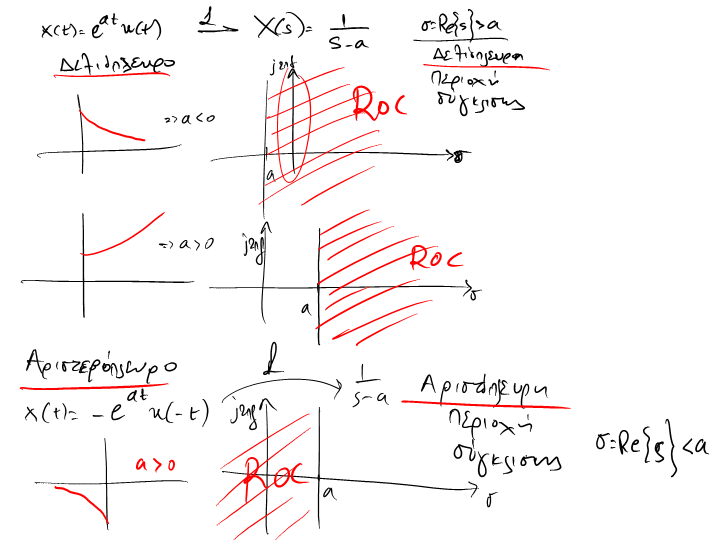 x(t)=e^{at} u(t) ℒ→ X(s)= 1/(s-a) σ=Re{s}>a
Δεξιόπλευρο
Δεξιόπλευρη
περιοχή
σύγκλισης
j2πf
=> a<0
ROC
a
σ
=> a>0
j2πf
ROC
a
σ
Αριστερόπλευρο
x(t)= -e^{at} u(-t) ℒ 1/(s-a)
Αριστόπλευρη
περιοχή
σύγκλισης
σ=Re{s}<a
j2πf
a>0
ROC
a
σ